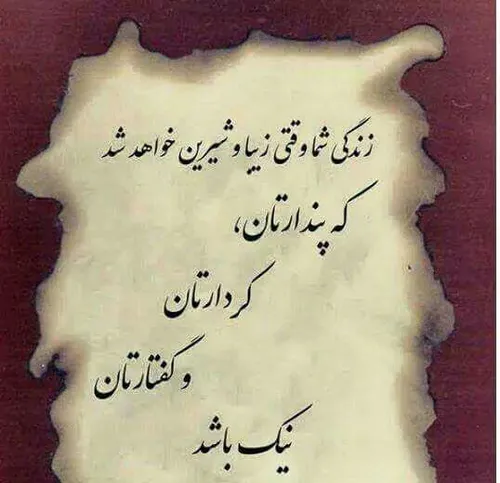 زندگی شما وقتی زیبا و شیرین خواهد شد
که پندارتان،
کردارتان
و گفتارتان
نیک باشد